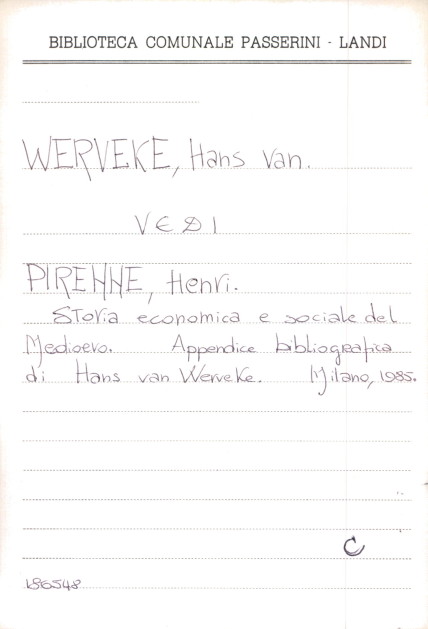 BIBLIOTECA COMUNALE PASSERINI - LANDI
WERVEKE, Hans van.
VEDI
PIRENNE, Henri.
Storia economica e sociale del
Medioevo. Appendice bibliografica
di Hans van Werveke. Milano, 1985.
C
186548